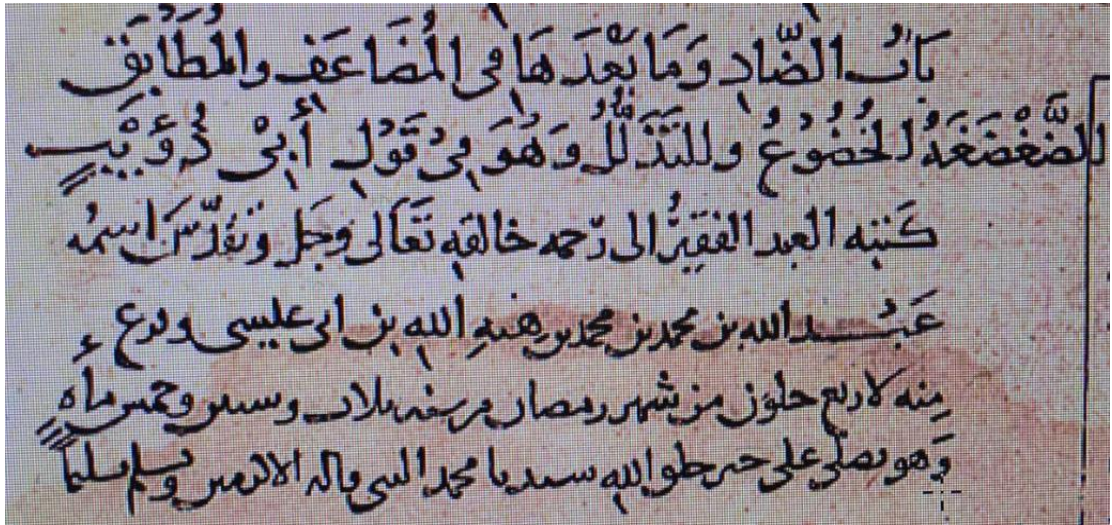 بَابُ الضَّادِ وَمَا بَعْدَهَا فِي الْمُضَاعَفِ وَالْمُطَابَقِ
الضَّغْضَغَةُ الْخُضُوعُ وَالتَّذَلُّلُ وَهُوَ فِي قَوْلِ أَبِي ذُؤَيْبٍ
كَتَبَه العبد الفقيرُ الى رَحمه خالقه تَعَالى وَجَل وتقدّسَ اسمُه
عَبْد الله بن محمد بن محمد بن هبهِ الله بن ابى عليسى وفرغ
مِنه لاربع خلون من شهر رمضان من سنه ثلاث وستين وخمس مائهٍ
وَهو يصلى على خير خلق الله سيدنا محمد النبى واله الاكرمين ويسلم تسليماً